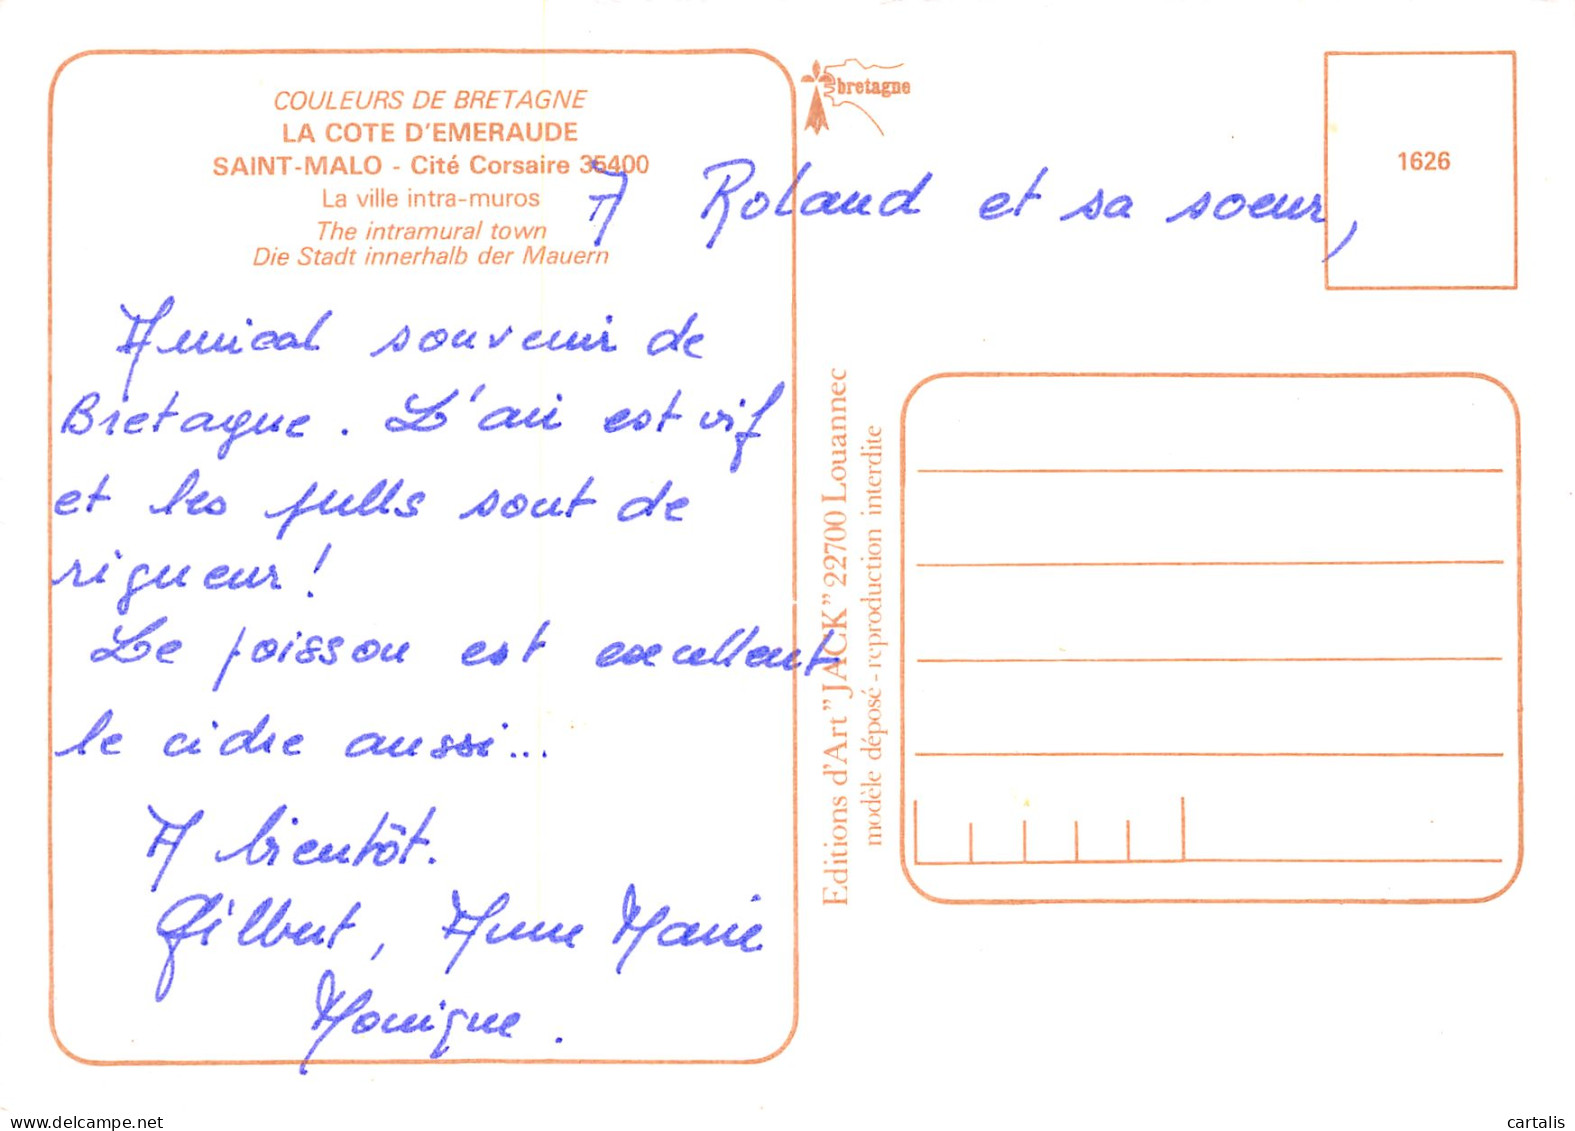 COULEURS DE BRETAGNE
LA COTE D'EMERAUDE
SAINT-MALO - Cité Corsaire 35400
La ville intra-muros
The intramural town
Die Stadt innerhalb der Mauern
bretagne
1626
A Roland et sa soeur,
Amical souvenir de
Bretagne. L'air est vif
et les pulls sont de
rigueur !
Le poisson est excellent
le cidre aussi...
A bientôt.
Gilbert, Anne Marie
Monique.
Editions d'Art "JACK" 22700 Louannec
modèle déposé - reproduction interdite
delcampe.net
cartalis